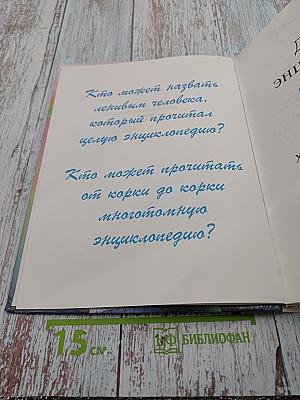 Кто может назвать
ленивым человека,
который прочитал
целую энциклопедию?
Кто может прочитать
от корки до корки
многотомную
энциклопедию?
15 см
БИБЛИОФАН